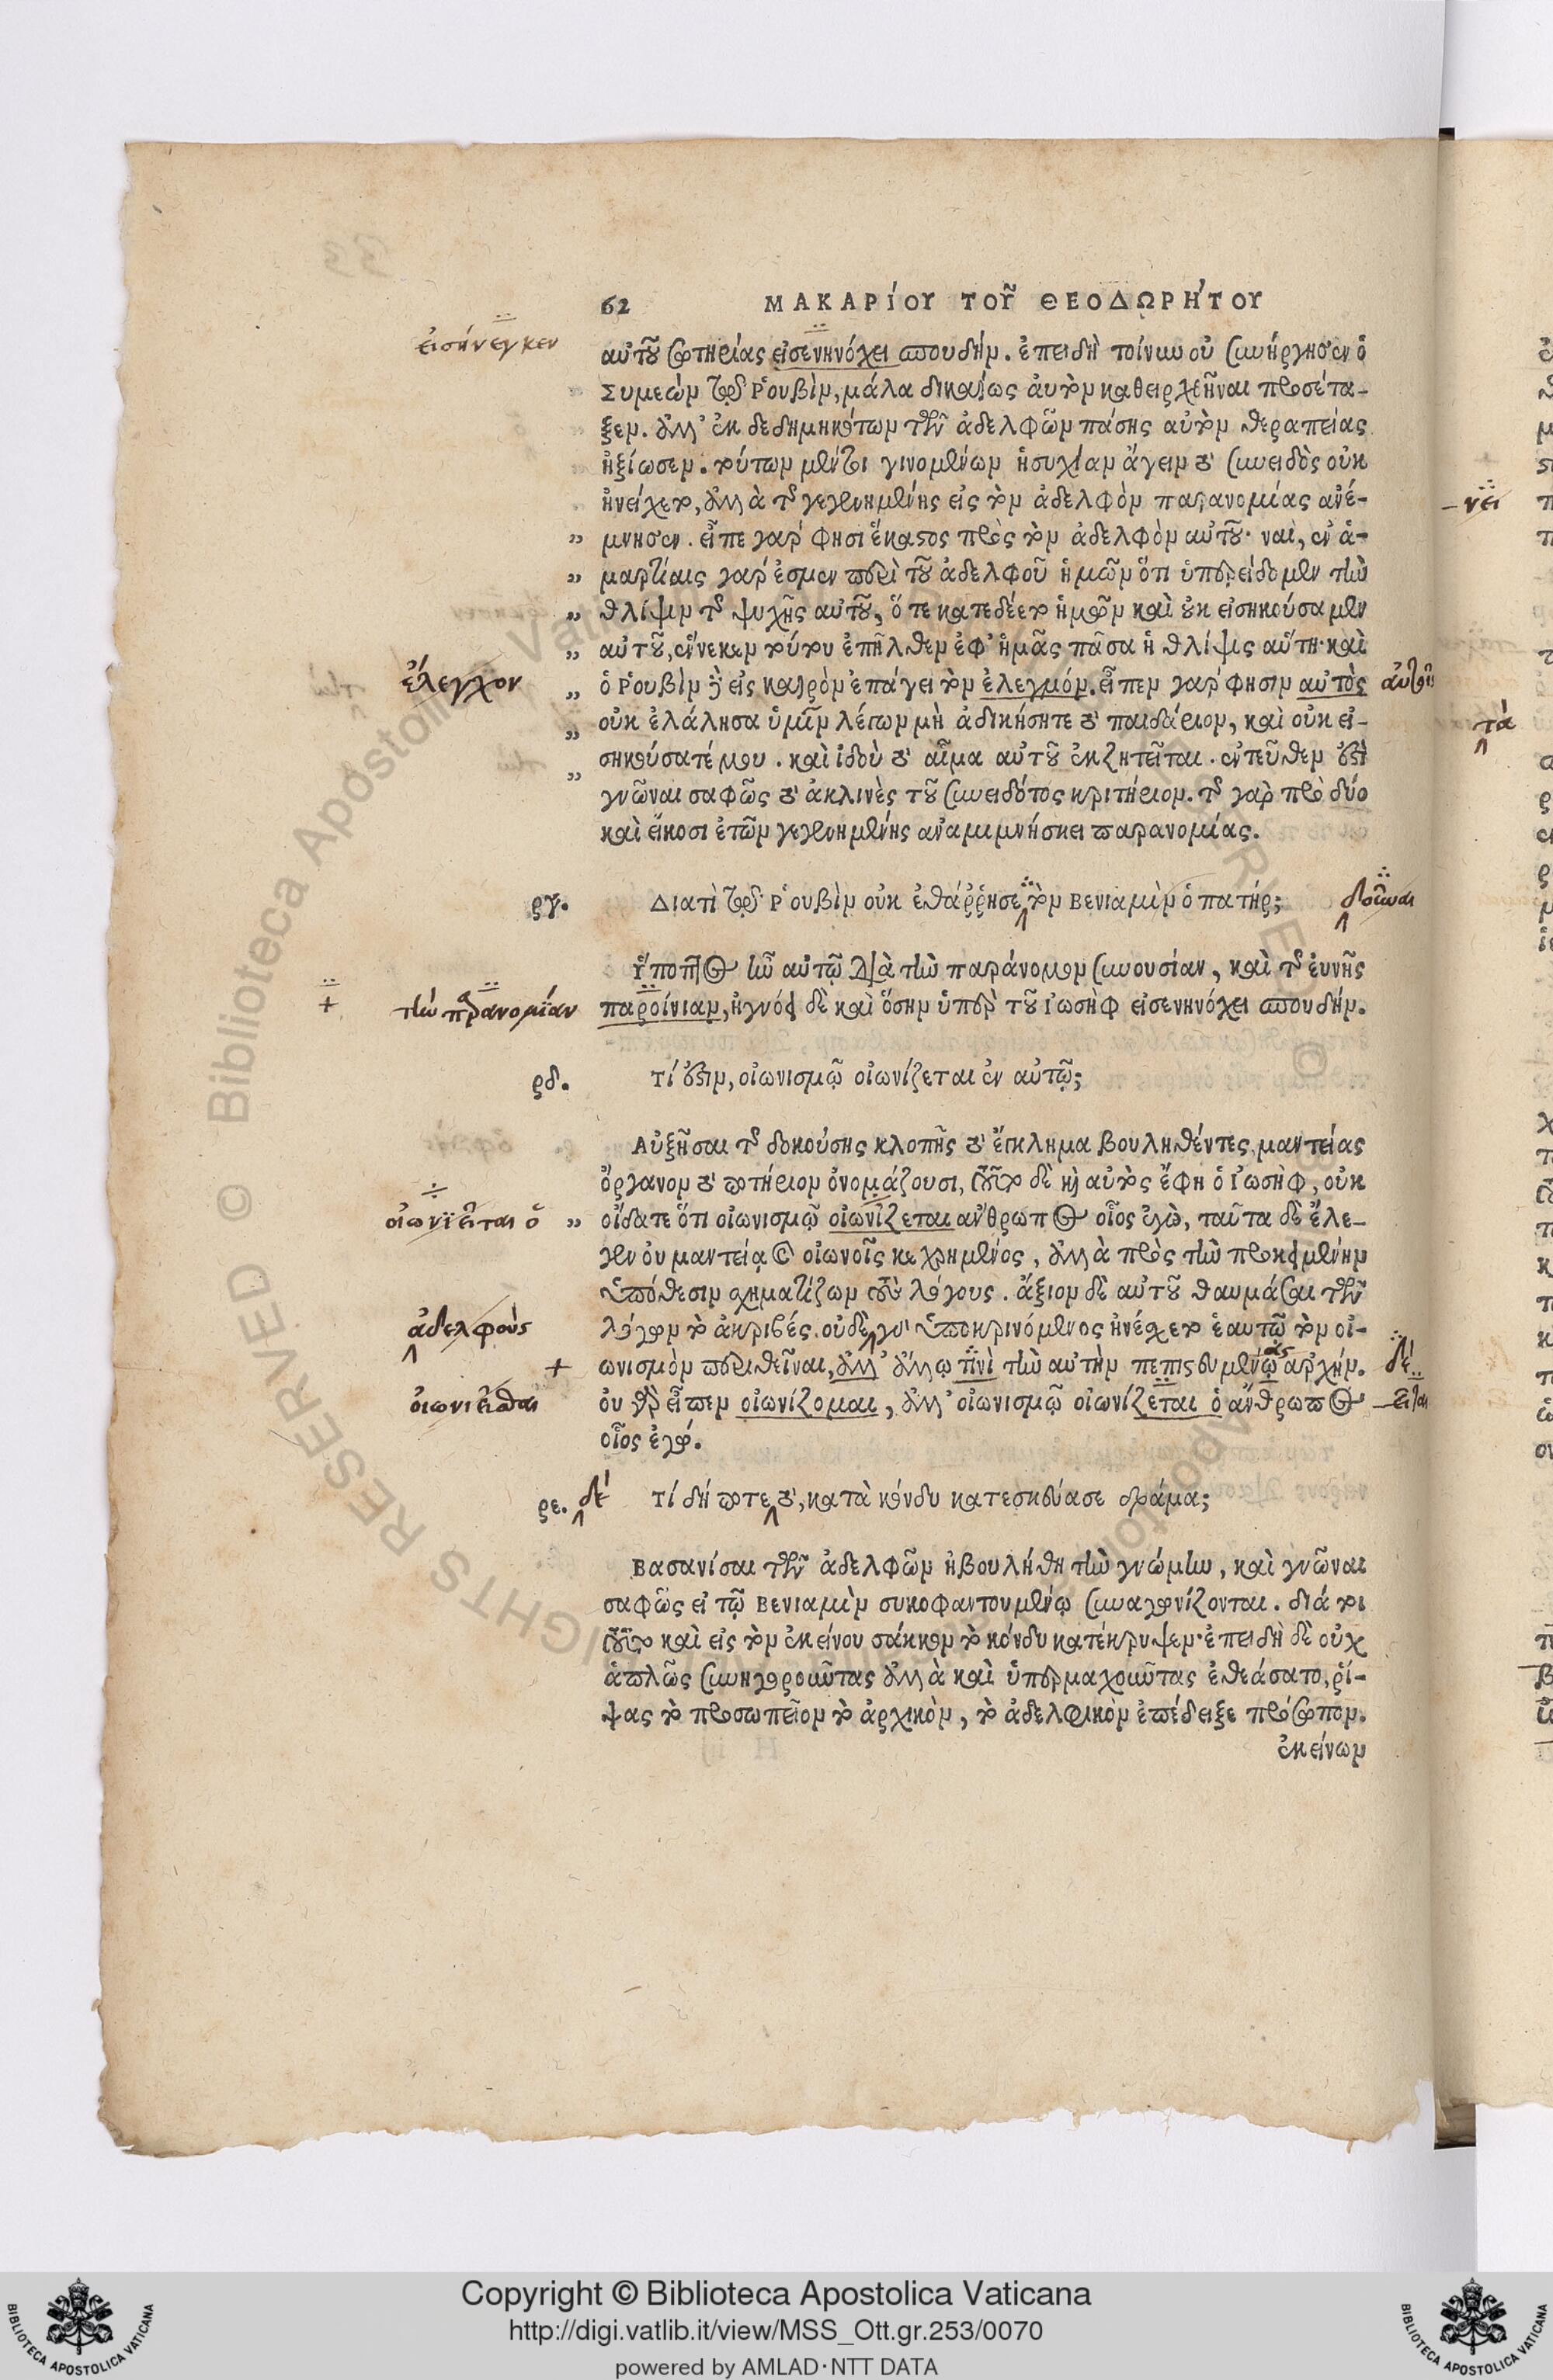 62 ΜΑΚΑΡίΟΥ ΤΟΥ͂ ΘΕΟΔΩΡΉΤΟΥ
εἰσήνεγκεν
αὐτοῦ σωτηρίας εἰσενηνόχει σπουδήν. ἐπειδὴ τοίνυν οὐ συνήργησεν ὁ
Συμεὼν τῷ Ῥουβὶν, μάλα δικαίως αὐτὸν καθειρχθῆναι προσέτα-
ξεν. ἀλλ' ἐκ δεδημηκότων τῶν ἀδελφῶν πάσης αὐτὸν θεραπείας
ἠξίωσεν. τούτων μέντοι γινομένων ἡσυχίαν ἄγειν τὸ συνειδὸς οὐκ
ἠνείχετο, ἀλλὰ τῆς γεγενημένης εἰς τὸν ἀδελφὸν παρανομίας ἀνέ-
„ μνησεν. εἶπε γάρ φησι ἕκαστος πρὸς τὸν ἀδελφὸν αὐτοῦ· ναὶ, ἐν ἁ-
„ μαρτίαις γάρ ἐσμεν περὶ τοῦ ἀδελφοῦ ἡμῶν ὅτι ὑπερείδομεν τὴν
„ θλίψιν τῆς ψυχῆς αὐτοῦ, ὅτε κατεδέετο ἡμῶν καὶ οὐκ εἰσηκούσαμεν
„ αὐτοῦ, ἕνεκεν τούτου ἐπῆλθεν ἐφ' ἡμᾶς πᾶσα ἡ θλίψις αὕτη· καὶ
ἔλεγχον
„ ὁ Ῥουβὶν δὲ εἰς καιρὸν ἐπάγει τὸν ἐλεγμόν. εἶπεν γάρ φησιν αὐτὸς
„ οὐκ ἐλάλησα ὑμῖν λέγων μὴ ἀδικήσητε τὸ παιδάριον, καὶ οὐκ εἰ-
„ σηκούσατέ μου. καὶ ἰδοὺ τὸ αἷμα αὐτοῦ ἐκζητεῖται. ἐντεῦθεν ἔστι
γνῶναι σαφῶς τὸ ἀκλινὲς τοῦ συνειδότος κριτήριον. τῆς γὰρ πρὸ δύο
καὶ εἴκοσι ἐτῶν γεγενημένης ἀναμιμνήσκει παρανομίας.
ργ. Διατὶ τῷ Ῥουβὶν οὐκ ἐθάῤῥησε τὸν Βενιαμὶν ὁ πατήρ;
δοῦναι
Ὕποπτος ἦν αὐτῷ διὰ τὴν παράνομον συνουσίαν, καὶ τῆς εὐνῆς
τὴν παρανομίαν
παροίνιαν, ἠγνόει δὲ καὶ ὅσην ὑπὲρ τοῦ Ἰωσὴφ εἰσενηνόχει σπουδήν.
ρδ. Τί ἔστιν, οἰωνισμῷ οἰωνίζεται ἐν αὐτῷ;
Αὐξῆσαι τῆς δοκούσης κλοπῆς τὸ ἔγκλημα βουληθέντες, μαντείας
ὄργανον τὸ ποτήριον ὀνομάζουσι, τοῦτο δὲ καὶ αὐτὸς ἔφη ὁ Ἰωσὴφ, οὐκ
οἰωνϊεῖται ὁ
„ οἴδατε ὅτι οἰωνισμῷ οἰωνίζεται ἄνθρωπος οἷος ἐγὼ, ταῦτα δὲ ἔλε-
γεν οὐ μαντείᾳ καὶ οἰωνοῖς κεχρημένος, ἀλλὰ πρὸς τὴν προκειμένην
ὑπόθεσιν σχηματίζων τοὺς λόγους. ἄξιον δὲ αὐτοῦ θαυμάσαι τῶν
ἀδελφοὺς
λόγων τὸ ἀκριβές. οὐδὲ γὰρ ὑποκρινόμενος ἠνέσχετο ἑαυτῷ τὸν οἰ-
+ ωνισμὸν περιθεῖναι, ἀλλ' ἄλλῳ τινὶ τὴν αὐτὴν πεπιστευμένῳ ἀρχήν.
δέ
οἰωνιεῖσθαι
οὐ γὰρ εἶπεν οἰωνίζομαι, ἀλλ' οἰωνισμῷ οἰωνίζεται ὁ ἄνθρωπος
–εῖται
οἷος ἐγώ.
ρε. δὲ Τί δή ποτε τὸ, κατὰ κόνδυ κατεσκεύασε δράμα;
Βασανίσαι τῶν ἀδελφῶν ἠβουλήθη τὴν γνώμην, καὶ γνῶναι
σαφῶς εἰ τῷ Βενιαμὶν συκοφαντουμένῳ συναγωνίζονται. διά τοι
τοῦτο καὶ εἰς τὸν ἐκείνου σάκκον τὸ κόνδυ κατέκρυψεν· ἐπειδὴ δὲ οὐχ
ἁπλῶς συνηγοροῦντας ἀλλὰ καὶ ὑπερμαχοῦντας ἐθεάσατο, ῥί-
ψας τὸ προσωπεῖον τὸ ἀρχικὸν, τὸ ἀδελφικὸν ἐπέδειξε πρόσωπον.
ἐκείνων
–νει
τὰ
Biblioteca Apostolica Vaticana
RIGHTS RESERVED ©
Copyright © Biblioteca Apostolica Vaticana
http://digi.vatlib.it/view/MSS_Ott.gr.253/0070
powered by AMLAD·NTT DATA
BIBLIOTECA APOSTOLICA VATICANA
BIBLIOTECA APOSTOLICA VATICANA